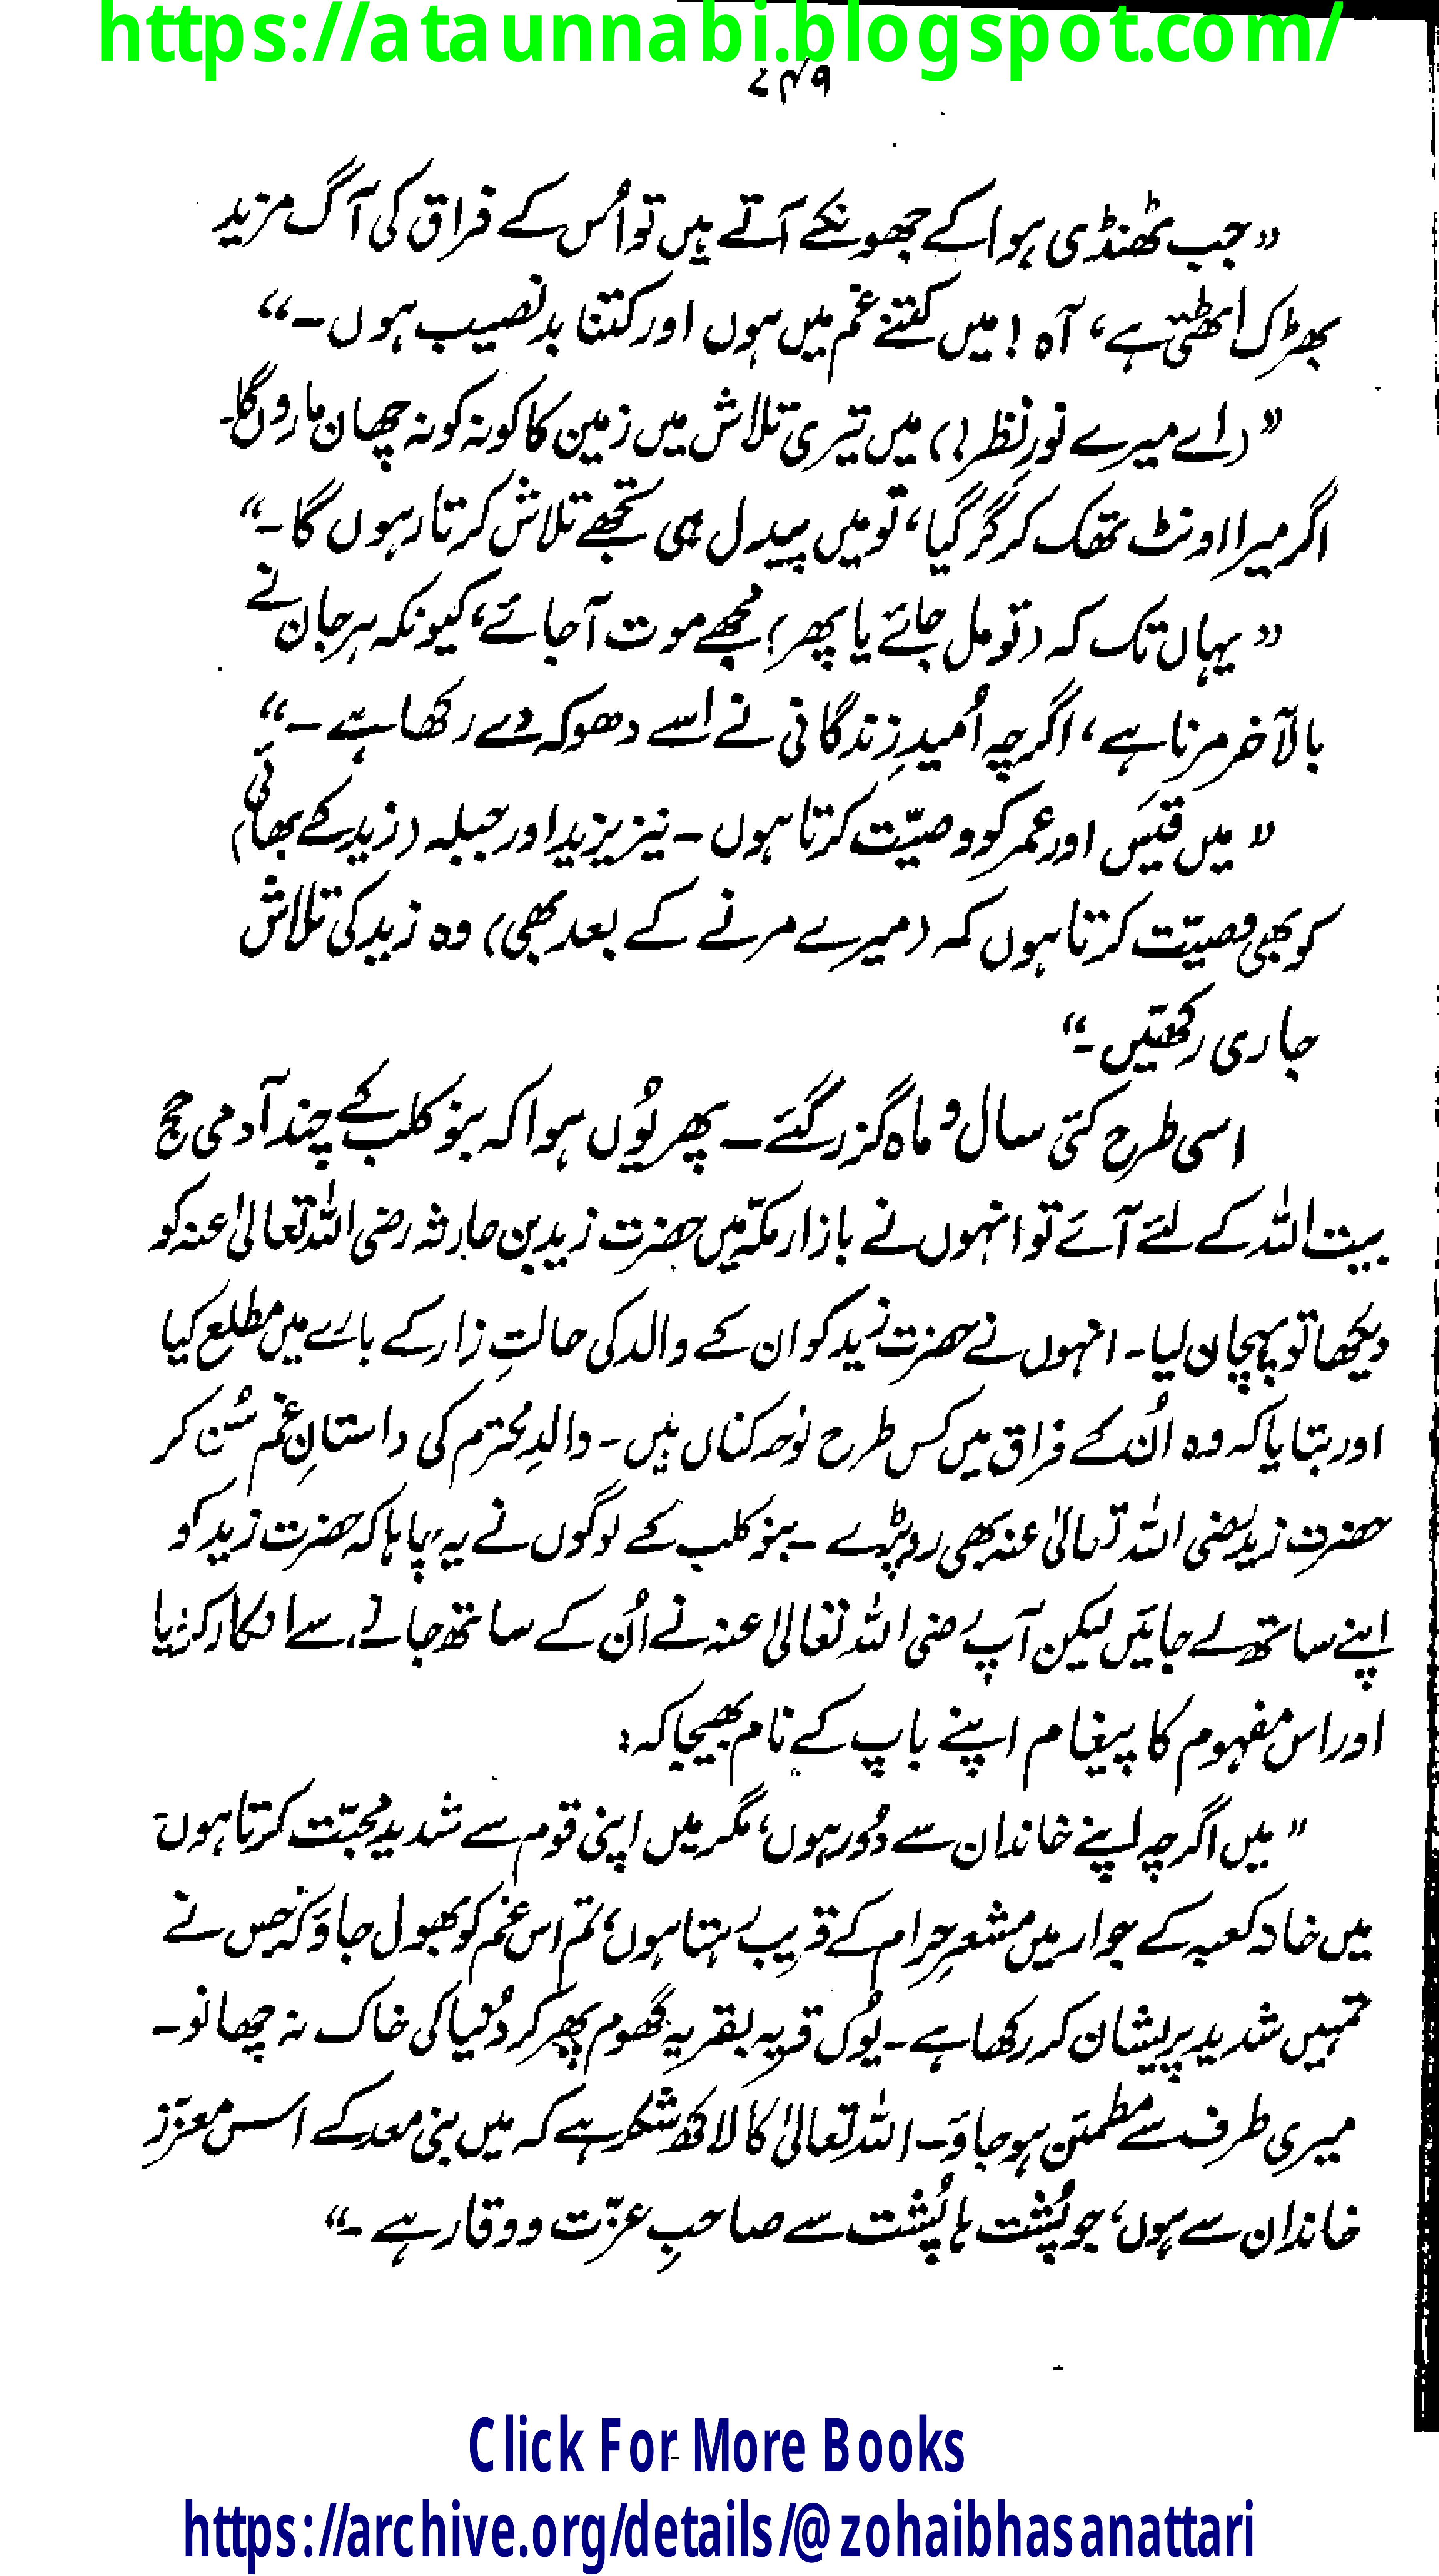 https://ataunnabi.blogspot.com/
۷۴۹
”جب ٹھنڈی ہوا کے جھونکے آتے ہیں تو اُس کے فراق کی آگ مزید
بھڑک اٹھتی ہے، آہ! میں کتنے غم میں ہوں اور کتنا بدنصیب ہوں۔“
”(اے میرے نورِ نظر!) میں تیری تلاش میں زمین کا کونہ کونہ چھان ماروں گا۔
اگر میرا اونٹ تھک کر گر گیا، تو میں پیدل ہی تجھے تلاش کرتا رہوں گا۔“
”یہاں تک کہ (تو مل جائے یا پھر) مجھے موت آجائے، کیونکہ ہر جان نے
بالآخر مرنا ہے، اگرچہ اُمیدِ زندگانی نے اسے دھوکہ دے رکھا ہے۔“
”میں قیسَ اور عمر کو وصیّت کرتا ہوں۔ نیز یزید اور جبلہ (زید کے بھائی)
کو بھی وصیّت کرتا ہوں کہ (میرے مرنے کے بعد بھی) وہ زید کی تلاش
جاری رکھیں۔“
اسی طرح کئی سال و ماہ گزر گئے۔ پھر یُوں ہوا کہ بنو کلب کے چند آدمی حج
بیت اللہ کے لئے آئے تو انہوں نے بازار مکّہ میں حضرت زید بن حارثہ رضی اللہ تعالیٰ عنہ کو
دیکھا تو پہچان لیا۔ انہوں نے حضرت زید کو ان کے والد کی حالتِ زار کے بارے میں مطلع کیا
اور بتایا کہ وہ اُن کے فراق میں کس طرح نوحہ کناں ہیں۔ والدِ محترم کی داستانِ غم سُن کر
حضرت زید رضی اللہ تعالیٰ عنہ بھی رو پڑے۔ بنو کلب کے لوگوں نے یہ چاہا کہ حضرت زید کو
اپنے ساتھ لے جائیں لیکن آپ رضی اللہ تعالیٰ عنہ نے اُن کے ساتھ جانے سے انکار کردیا
اور اس مفہوم کا پیغام اپنے باپ کے نام بھیجا کہ:
”میں اگرچہ اپنے خاندان سے دُور ہوں، مگر میں اپنی قوم سے شدید محبّت کرتا ہوں۔
میں خانہ کعبہ کے جوار میں مشعرِ حرام کے قریب رہتا ہوں، تم اس غم کو بھول جاؤ کہ جس نے
تمہیں شدید پریشان کر رکھا ہے۔ یُوں قریہ بقریہ گھوم پھر کر دُنیا کی خاک نہ چھانو۔
میری طرف سے مطمئن ہوجاؤ۔ اللہ تعالیٰ کا لاکھ شکر ہے کہ میں بنی معد کے اس معزّز
خاندان سے ہوں، جو پُشت ہا پُشت سے صاحبِ عزّت و وقار ہے۔“
Click For More Books
https://archive.org/details/@zohaibhasanattari